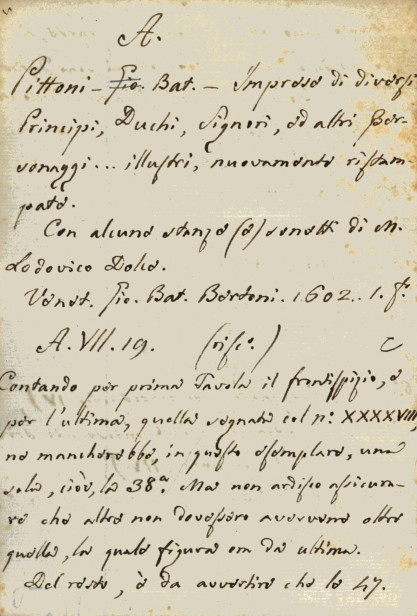 A.
Pittoni - Gio. Bat. - Imprese di diversi
Principi, Duchi, Signori, ed altri Per-
sonaggi... illustri, nuovamente ristam-
pate.
Con alcune stanze (e) sonetti di M.
Lodovico Dolce.
Venet. Gio. Bat. Bertoni. 1602. 1. f.o
A. VII. 19. (risc.o) C
Contando per prima Tavola il frontispizio, e
per l'ultima, quella segnata col n.o XXXXVIII,
ne mancherebbe, in questo esemplare, una
sola, cioè, la 38.a Ma non ardisco assicura-
re che altre non dovessero avervene oltre
quella, la quale figura ora da ultima.
Del resto, è da avvertire che le 47.